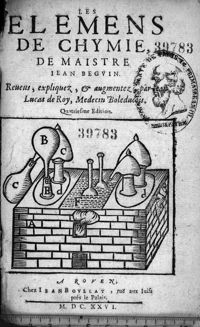 LES
ELEMENS
DE CHYMIE,
39783
DE MAISTRE
IEAN BEGVIN.
Reueus, expliquez, & augmentez par
Lucas de Roy, Medecin Boleducois.
Quatriesme Edition.
39783
B
B
C
C
F
A
A ROVEN,
Chez IEAN BOVLLAY, ruë aux Iuifs
prés le Palais.
M. DC. XXVI.